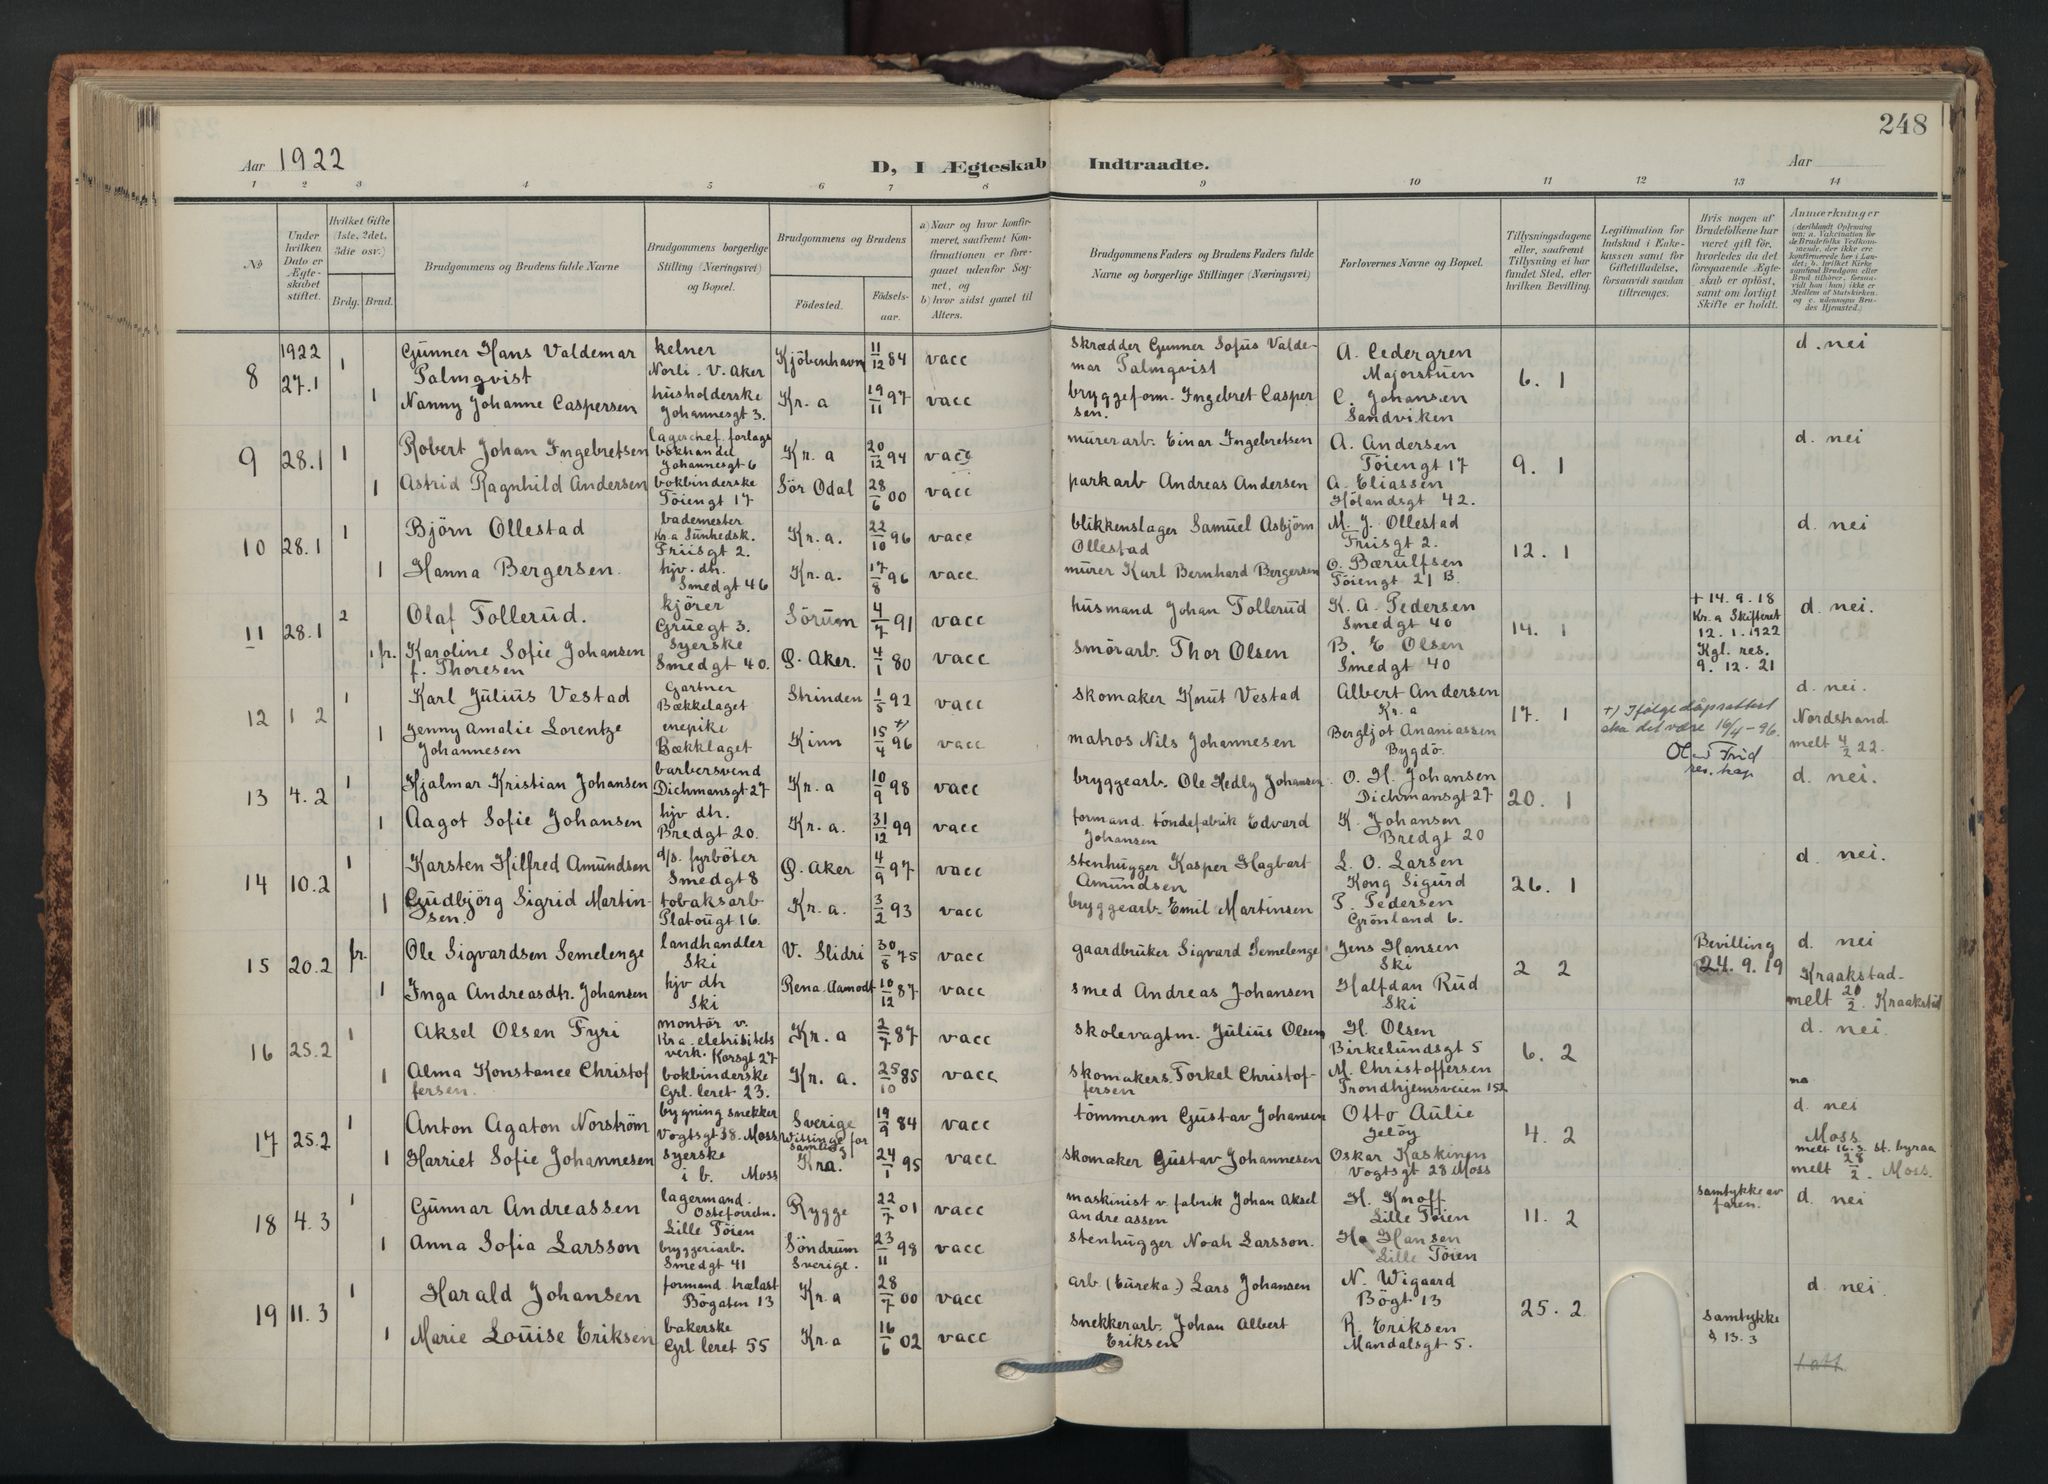 248
Aar 1922
D, I Ægteskab Indtraadte.
Aar
1 2 3 4 5 6 7 8 9 10 11 12 13 14
No
Under hvilken Dato er Ægteskabet stiftet.
Hvilket Gifte (1ste, 2det, 3die osv.)
Brdg. Brud.
Brudgommens og Brudens fulde Navne
Brudgommens borgerlige Stilling (Næringsvei) og Bopæl.
Brudgommens og Brudens
Fødested.
Fødselsaar.
a) Naar og hvor konfirmeret, saafremt Konfirmationen er foregaaet udenfor Sognet, og
b) hvor sidst gaaet til Alters.
Brudgommens Faders og Brudens Faders fulde Navne og borgerlige Stillinger (Næringsvei)
Forlovernes Navne og Bopæl.
Tillysningsdagene eller, saafremt Tillysning ei har fundet Sted, efter hvilken Bevilling.
Legitimation for Indskud i Enkekassen samt for Giftetilladelse, forsaavidt saadan tiltrænges.
Hvis nogen af Brudefolkene har været gift før, hvorledes da det foregaaende Ægteskab er opløst, samt om lovligt Skifte er holdt.
Anmærkninger
8 1922 27.1 1 Gunner Hans Valdemar Palmqvist kelner Norli. V. Aker Kjöbenhavn 11/12 84 vacc skrædder Gunner Sofus Valdemar Palmqvist A. Cedergren Majorstuen 6. 1 d. nei
1 Nanny Johanne Caspersen husholderske Johannesgt 3. Kr. a 19/11 97 vacc bryggeform. Ingebret Caspersen. C. Johansen Sandviken
9 28.1 1 Robert Johan Ingebretsen lagerchef. forlags bokhandel Johannesgt 6 Kr. a 20/12 94 vacc murerarb. Einar Ingebretsen A. Andersen Töiengt 17 9. 1 d. nei
1 Astrid Ragnhild Andersen bokbinderske Töiengt 17 Sör Odal 28/6 00 vacc parkarb Andreas Andersen A. Eliassen Hölandsgt 42.
10 28.1 1 Björn Ollestad bademester Kr.a Sunhedsk. Friisgt 2. Kr. a. 22/10 96 vacc blikkenslager Samuel Asbjörn Ollestad M. J. Ollestad Friisgt 2. 12. 1 d. nei
1 Hanna Bergersen. hjv. dtr. Smedgt 46 Kr. a. 17/8 96 vacc murer Karl Bernhard Bergersen O. Bærulfsen Töiengt 21 B.
11 28.1 2 Olaf Tollerud. kjörer Gruegt 3. Sörum 4/7 91 vacc husmand Johan Tollerud K. A. Pedersen Smedgt 40 14. 1 + 14. 9. 18 Kr. a Skifteret 12. 1. 1922 d. nei.
1 fr. Karoline Sofie Johansen f. Thoresen syerske Smedgt 40. Ö. Aker. 4/1 80 vacc smörarb. Thor Olsen B. E Olsen Smedgt 40 Kgl. res. 9. 12. 21
12 1 2 1 Karl Julius Vestad Gartner Bækkelaget Strinden 1/5 92 vacc skomaker Knut Vestad Albert Andersen Kr. a 17. 1 +) Ifølge dåpsattest ska det være 16/4-96. d. nei.
1 Jenny Amalie Lorentze Johannesen enepike Bækklaget Kinn 15/4 96 +) vacc matros Nils Johannesen Bergljot Ananiassen Bygdö. res. kap Nordstrand melt 4/2 22.
13 4.2 1 Hjalmar Kristian Johansen barbersvend Dichmansgt 27 Kr. a 10/9 98 vacc bryggearb. Ole Hedly Johansen O. H. Johansen Dichmansgt 27 20. 1 d. nei.
1 Aagot Sofie Johansen hjv dtr. Bredgt 20. Kr. a. 31/12 99 vacc formand töndefabrik Edvard Johansen K. Johansen Bredgt 20
14 10.2 1 Karsten Hilfred Amundsen d/s. fyrböter Smedgt 8 Ö. Aker 4/9 97 vacc stenhugger Kasper Hagbart Amundsen L. O. Larsen Kong Sigurd 26. 1 d. nei.
1 Gudbjörg Sigrid Martinsen. tobaksarb Platougt 16. Kr. a. 3/2 93 vacc bryggearb. Emil Martinsen P. Pedersen Grönland 6.
15 20.2 fr. Ole Sigvardsen Semelenge landhandler Ski V. Slidri 30/8 75 vacc gaardbruker Sigvard Semelenge Jens Hansen Ski 2 2 Bevilling 24. 9. 19 d. nei
1 Inga Andreasdtr. Johansen hjv dtr Ski Rena. Aamodt 10/12 87 vacc smed Andreas Johansen Halfdan Rud Ski Kraakstad melt 20/2. Kraakstad
16 25.2 1 Aksel Olsen Fyri montör v. Kr a. eletrisitetsverk. Korsgt 27 Kr. a 2/7 87 vacc skolevagtm. Julius Olsen H. Olsen Birkelundsgt 5 6. 2 d. nei
1 Alma Konstance Christoffersen. bokbinderske Grl. leret 23. Kr. a. 25/10 85 vacc skomakers. Torkel Christoffersen M. Christoffersen Trondhjemsveien 152
17 25.2 1 Anton Agaton Norström bygning snekker Vogtsgt 38. Moss Sverige 19/9 84 vacc tömmerm Gustav Johansen Otto Aulie Jelöy 4. 2 d. nei
1 Harriet Sofie Johannesen syerske i b. Moss Kra. 24/1 95 vacc skomaker Gustav Johannesen Oskar Kaskinen Vogtsgt 28 Moss Moss melt 16. 3 st. byraa melt 28/2. Moss.
18 4.3 1 Gunnar Andreassen lagermand. Lille Töien Rygge 22/7 01 vacc maskinist v. fabrik Johan Aksel Andreassen H. Knoff Lille Töien 11. 2 samtykke av faren. d. nei
1 Anna Sofia Larsson bryggeriarb. Smedgt 41 Söndrum Sverige. 23/11 98 vacc stenhugger Noah Larsson. Ha Hansen Lille Töien
19 11.3 1 Harald Johansen formand. trælast Bögaten 13 Kr. a 28/7 00 vacc arb (Eureka.) Lars Johansen N. Wigaard Bögt 13 25. 2 d. nei
1 Marie Louise Eriksen bakerske Grl. leret 55 Kr. a 16/6 02 vacc snekkerarb. Johan Albert Eriksen R. Eriksen Mandalsgt 5. samtykke § 13. 3